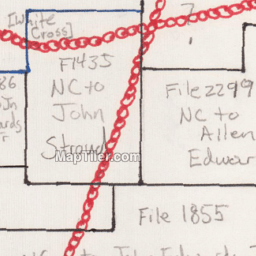 [White
Cross]
?
F1435
NC to
John
Stroud
86
File 2299
NC to
Allen
Edwar
MapTiler.com
File 1855